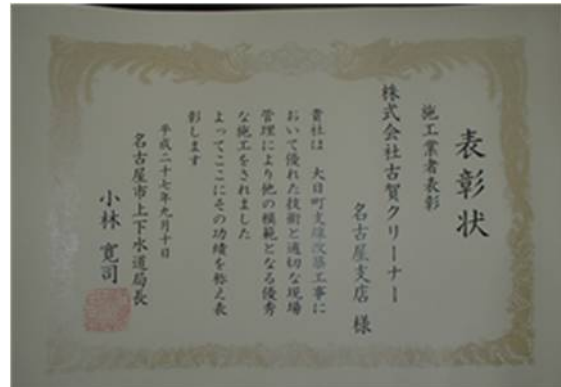 表彰状
施工業者表彰
株式会社古賀クリーナー
名古屋支店 様
貴社は 大日町支線改築工事に
おいて優れた技術と適切な現場
管理により他の模範となる優秀
な施工をされました
よってここにその功績を称え表
彰します
平成二十七年九月十日
名古屋市上下水道局長
小林 寛司